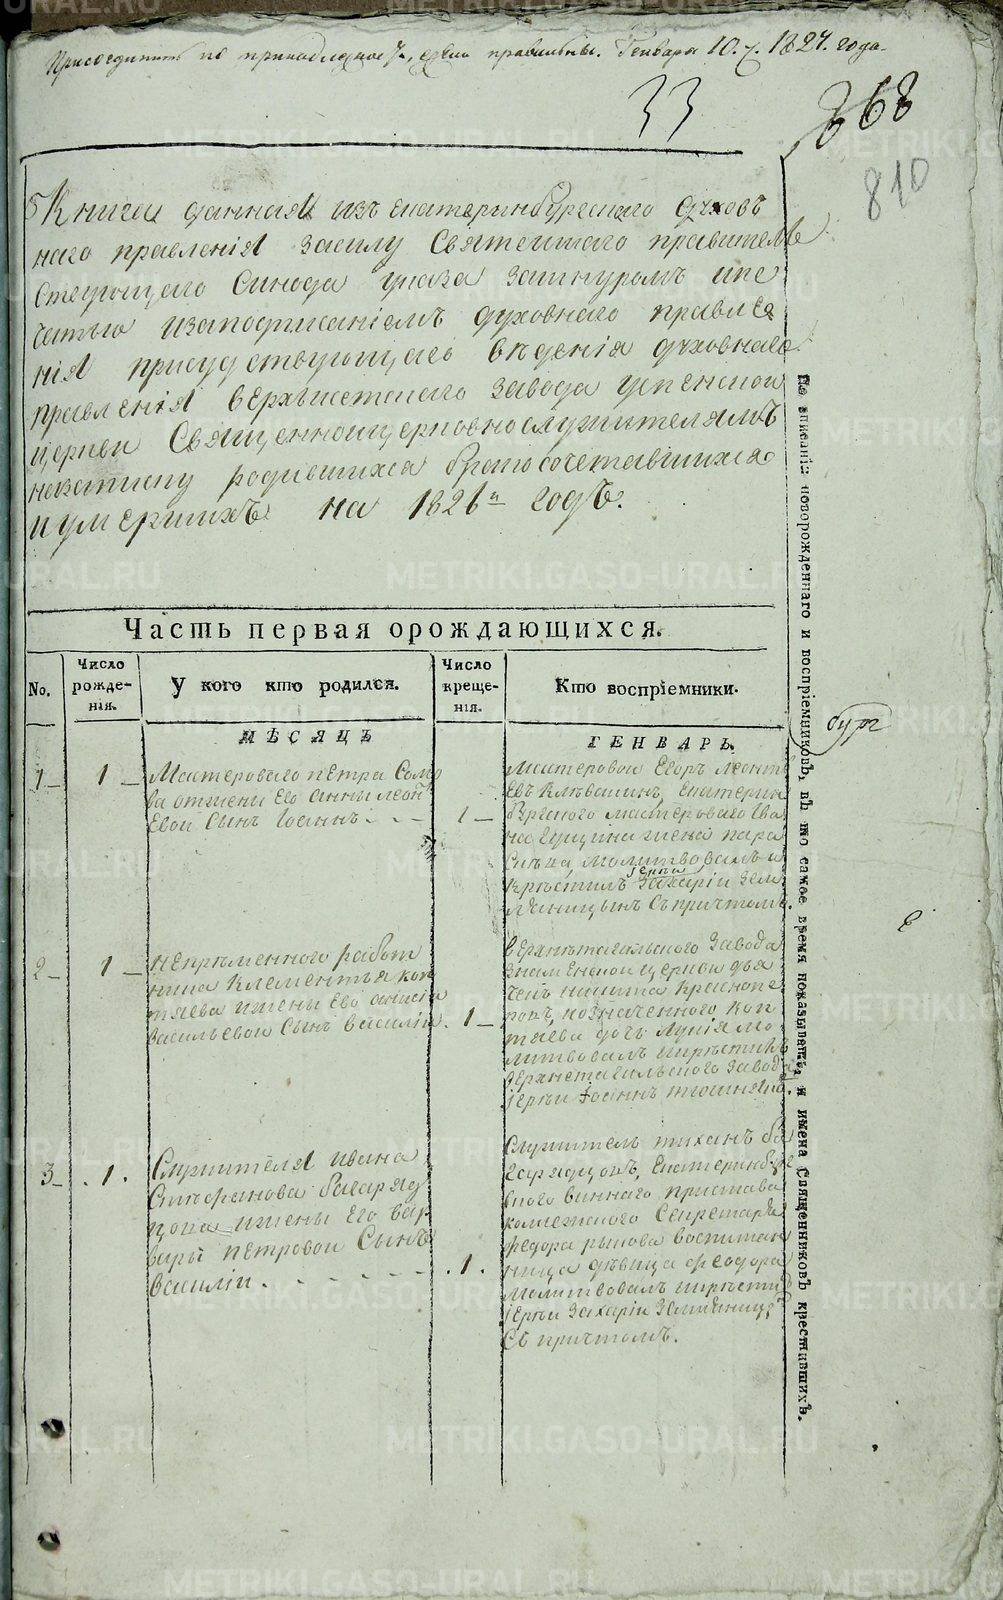 Присоединить по принадлежности, Генваря 10. ч. 1827. года.
33
868
810
Книга данная изъ екатеринбургскаго духов
наго правленія всилу Святейшаго правителъ
ствующаго Синода указа зашнуромъ ипе
чатью изаподписаніемъ духовнаго правле
нія присудствующаго вѣденія духовнаго
правленія верхъисетскаго завода успенской
церкви Священноицерковнослужителямъ
назаписку родившихся бракосочетавшихся
иумершихъ на 1826й годъ.
Часть первая орождающихся.
No.
Число рожде-нія.
У кого кто родился.
Число креще-нія.
Кто воспріемники.
МѢСЯЦЪ
ГЕНВАРЬ.
1 1
Мастероваго петра Сомо
ва отжены Его анны леон
Евой Сынъ Іоаннъ
1
Мастеровой Егоръ леонт
Евъ Клѣвакинъ, Екатерин
бургскаго мастероваго Ива
на жена пара
Скѣва, Молитвовалъ и
Крѣстилъ іерей Захарій Зем
ляницынъ Съпричтомъ.
2 1
непрѣменнаго работ
ника Климентья коп
тяева ижены Его анисіи
васильевой Сынъ василій
1
верхнѣтагильскаго Завода
Знаменской церкви дья
чекъ никита Красноп
ровъ, коптяева дочь
молитвовалъ икрѣстилъ
верхнетагильскаго Завода
іерѣй Іоаннъ
3 1.
Служителя ивана
Стѣфанова багаряд
цова ижены Его вар
вары петровой Сынъ
василій.
1.
Служитель тиханъ ба
гарядцовъ, Екатеринбург
скаго виннаго пристава
коллежскаго Секретаря
Федора рыкова воспитан
ница дѣвица феодора
Молитвовалъ икрѣстил
іерѣй Захарій Земляницы
Съ причтомъ.
По вписаніи новорожденнаго и воспріемниковъ, въ то самое время показывать, и имена Священниковъ крестившихъ.
бург
METRIKI.GASO-URAL.RU